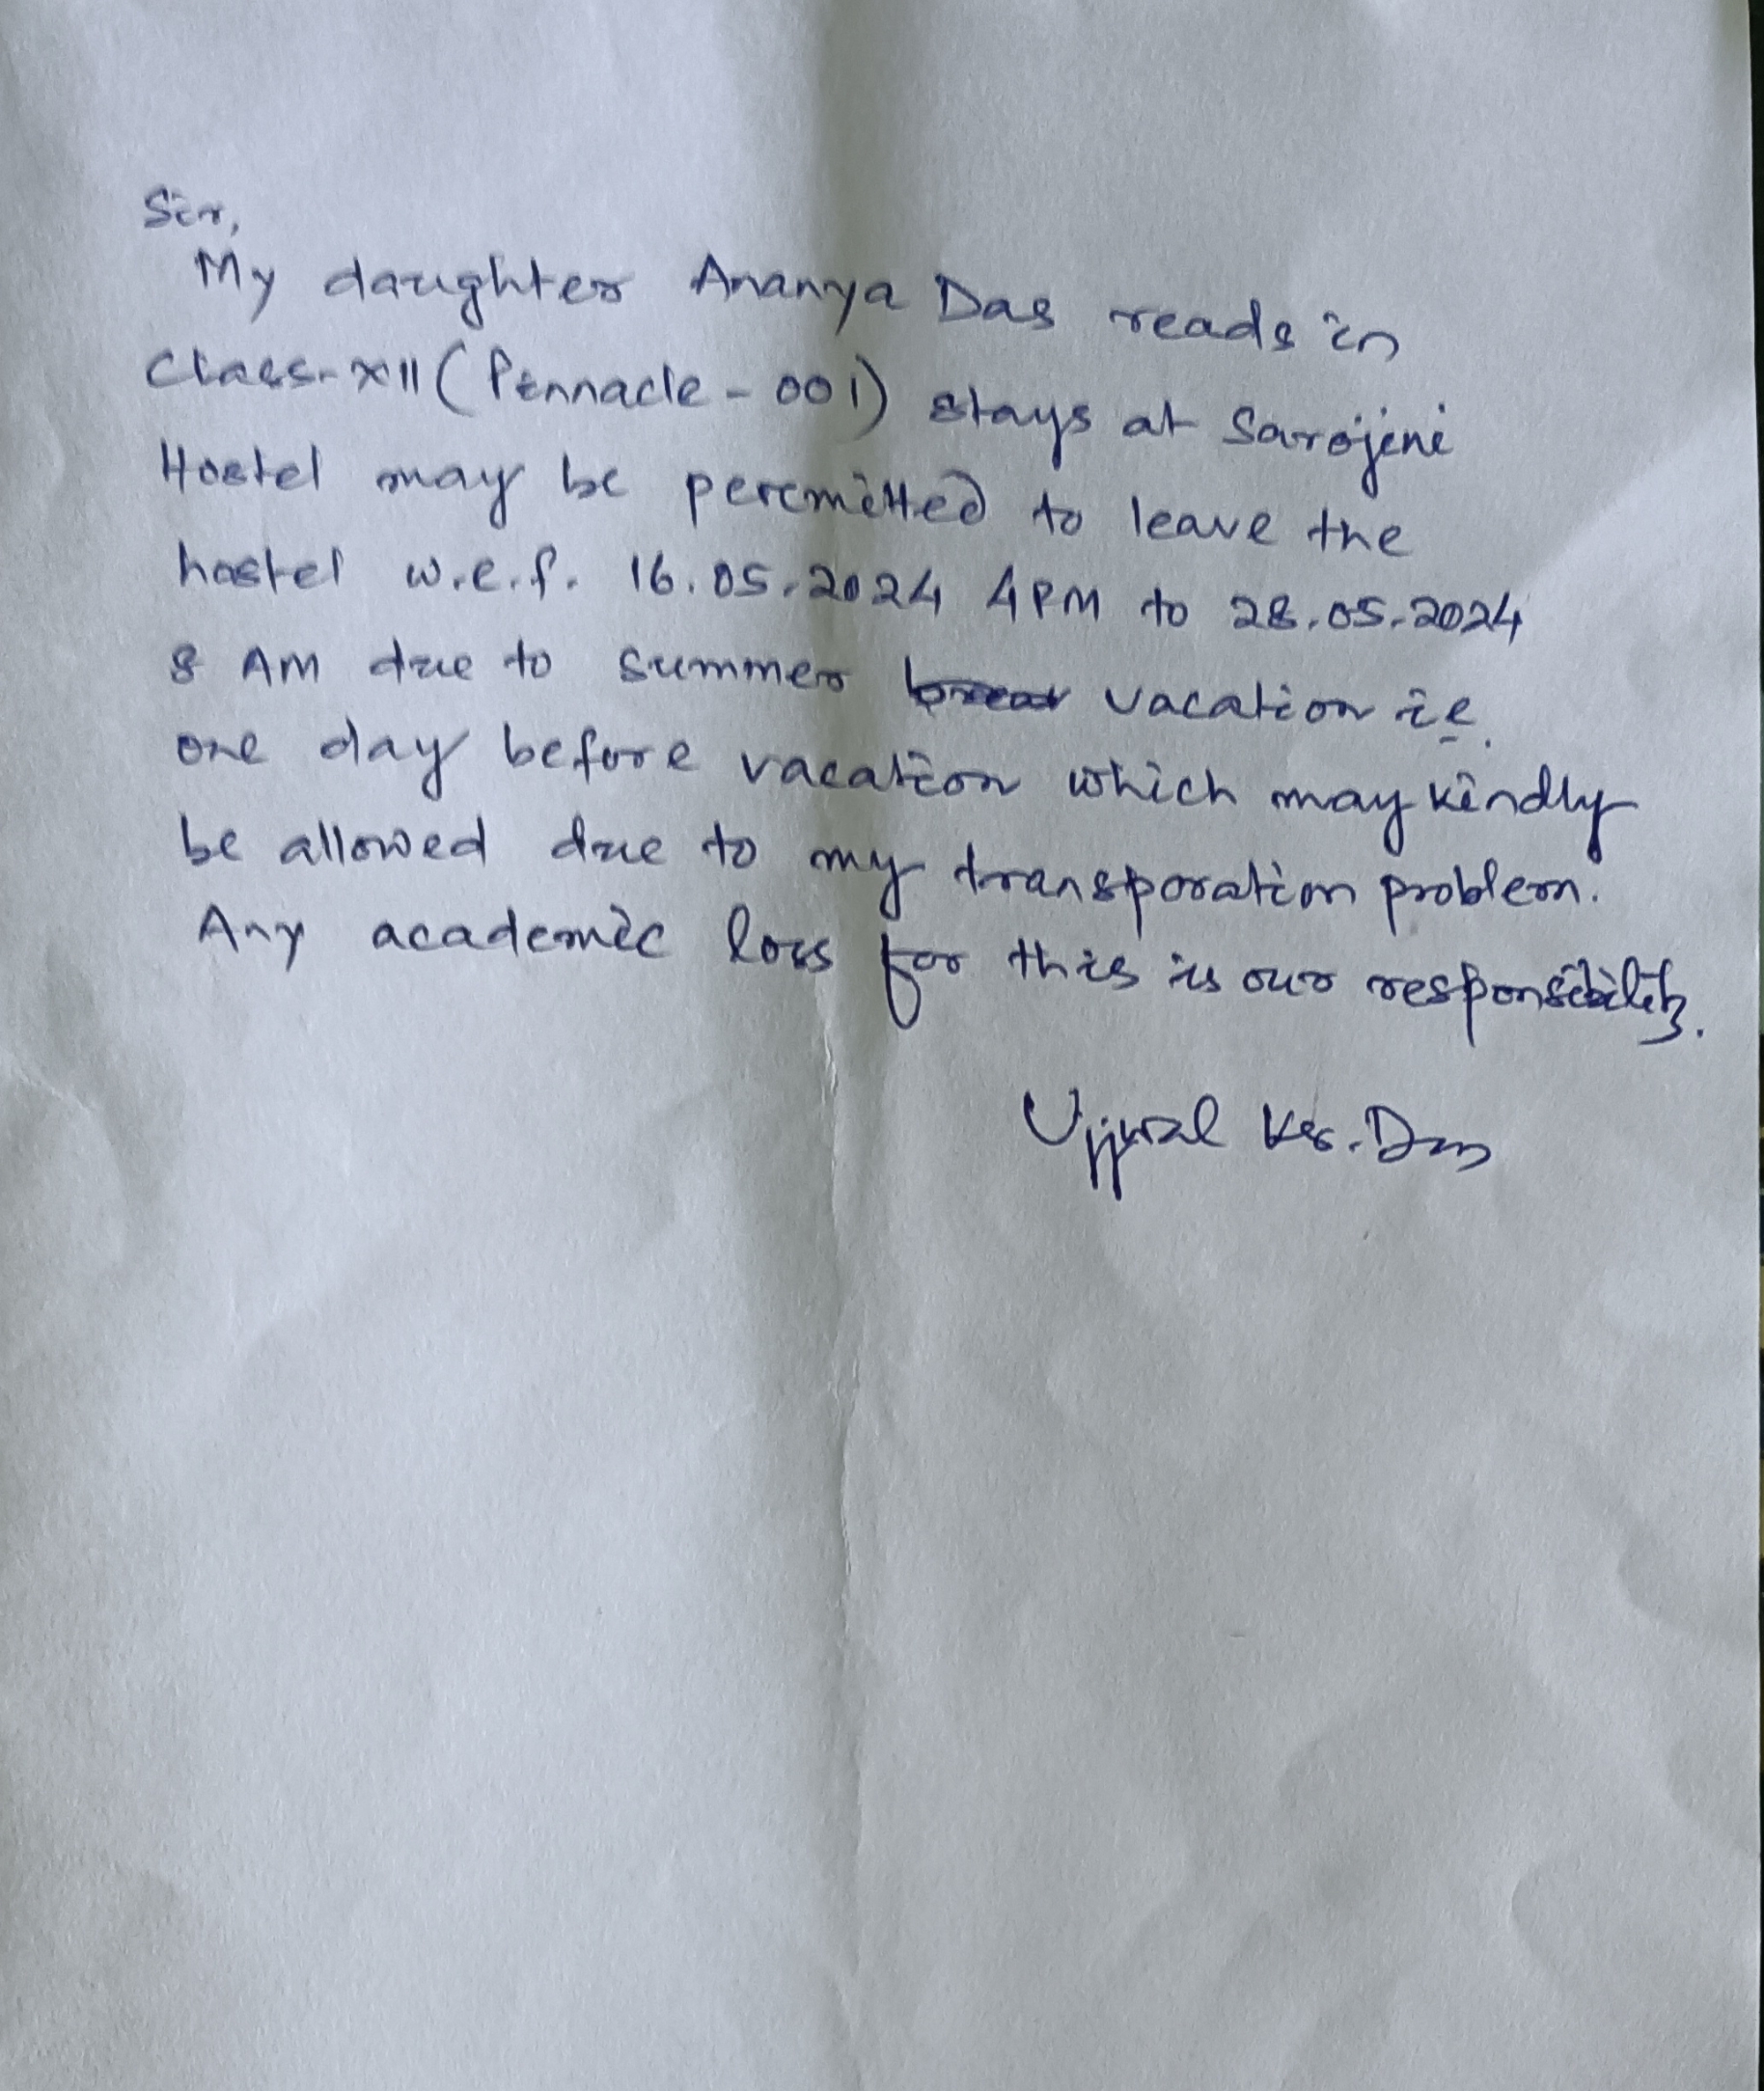 Sir,
My daughter Ananya Das reads in
Class-XII (Pinnacle - 001) stays at Sarojini
Hostel may be permitted to leave the
hostel w.e.f. 16.05.2024 4PM to 28.05.2024
8 AM due to summer break vacation ie.
one day before vacation which may kindly
be allowed due to my transporation problem.
Any academic loss for this is our responsibility.
Ujjwal Kr. Das